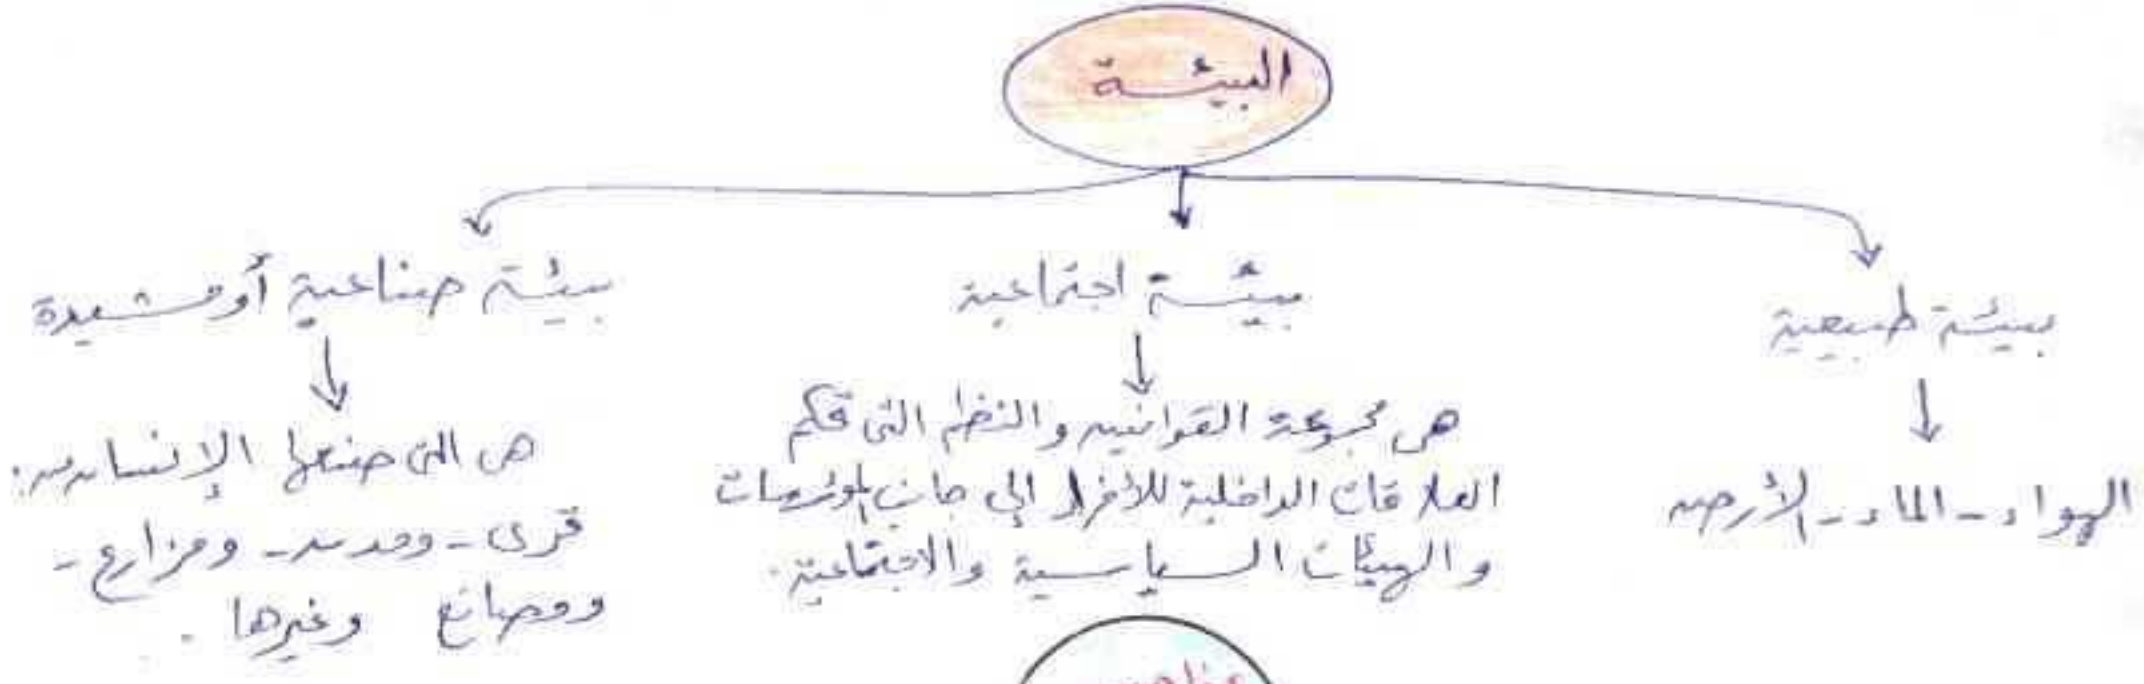 البيئة
بيئة طبيعية
الهواء - الماء - الأرض
بيئة اجتماعية
هى مجموعة القوانين والنظم التى تحكم
العلاقات الداخلية للأفراد إلى جانب المؤسسات
والهيئات السياسية والاجتماعية.
بيئة صناعية أو مشيدة
هى التى صنعها الإنسان من:
قرى - ومدن - ومزارع -
ومصانع وغيرها.